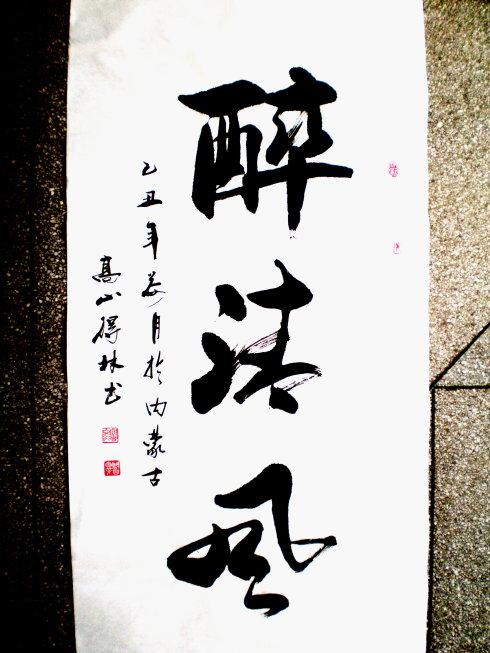 醉清风
乙丑年冬月於内蒙古
高山得林书